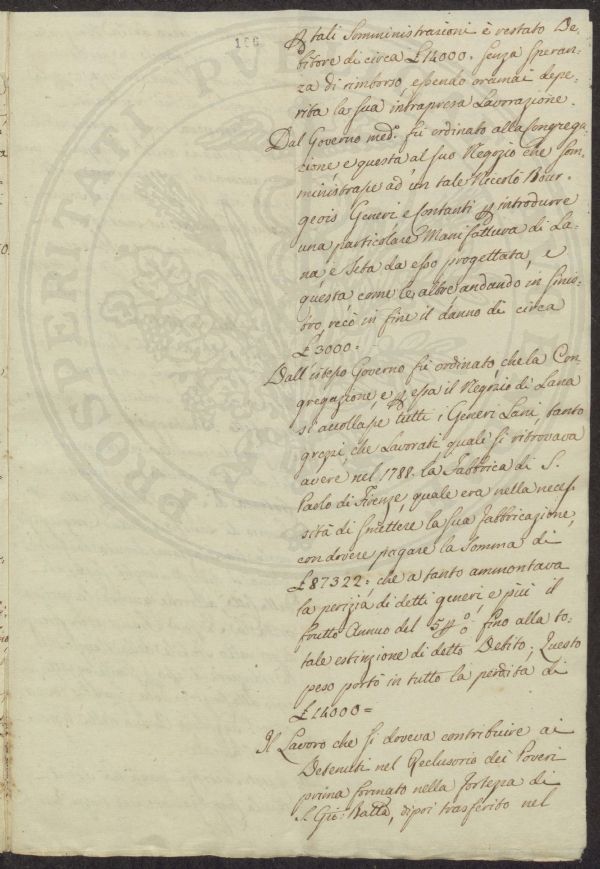 166
p tali Somministrazioni è restato De-
bitore di circa £ 14000. senza speran-
za di rimborso, essendo oramai depe-
rita la sua intrapresa Lavorazione.
Dal Governo med.o fu ordinato alla Congrega-
zione e questa al suo Negozio che som-
ministrasse ad un tale Niccolò Bour-
geois Generi, e Contanti p introdurre
una particolare Manifattura di La-
na e Seta da esso progettata, e
questa come le altre andando in sinis-
tro, recò in fine il danno di circa
£ 3000=
Dall'istesso Governo fu ordinato, che la Con-
gregazione, e p essa il Negozio di Lana
si accollasse tutti i Generi Lani, tanto
grezzi, che Lavorati quali si ritrovava
avere nel 1788. la Fabbrica di S.
Paolo di Firenze, quale era nella neces-
sità di smettere la sua fabbricazione,
con dovere pagare la somma di
£ 87322; che a tanto ammontava
la perizia di detti generi, e più il
frutto Annuo del 5 p % fino alla to-
tale estinzione di detto Debito; Questo
peso portò in tutto la perdita di
£ 14000=
Il Lavoro che si doveva contribuire ai
Detenuti nel Reclusorio dei Poveri
prima formato nella Fortezza di
S. Gio: Batta, dipoi trasferito nel
PROSPERITATI PUB